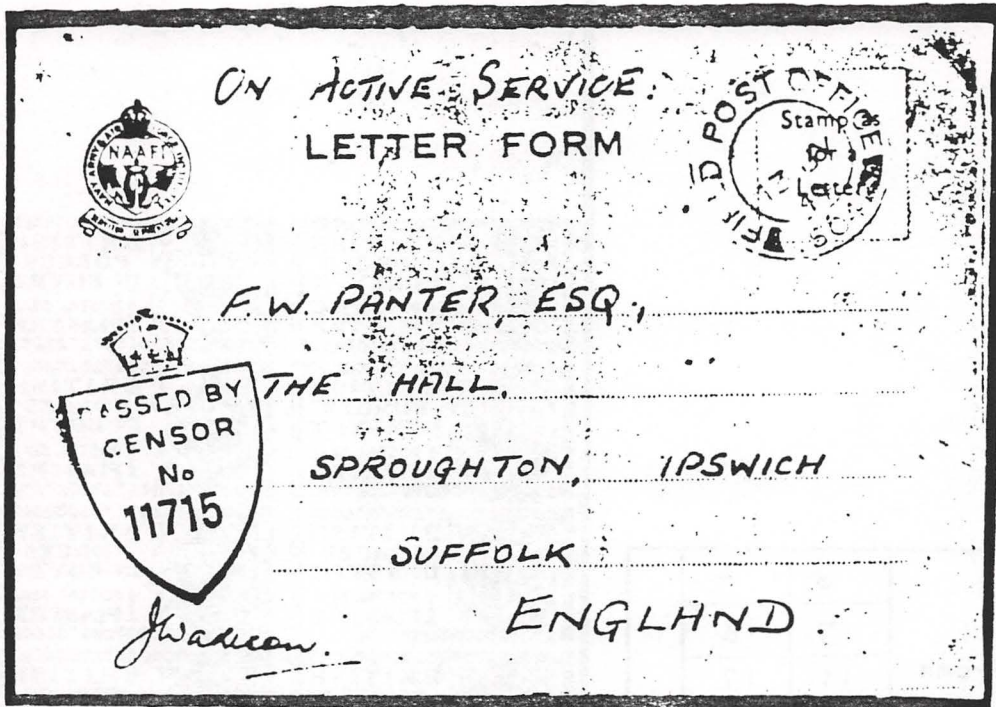 ON ACTIVE SERVICE.
LETTER FORM
NAAFI
FIELD POST OFFICE
Stamp as
for a
Letter
F.W. PANTER, ESQ.,
THE HALL,
SPROUGHTON, IPSWICH
SUFFOLK
ENGLAND.
PASSED BY
CENSOR
No
11715